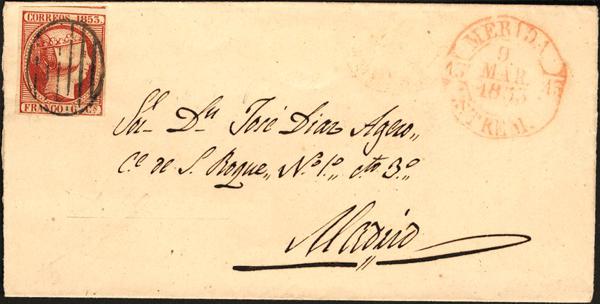 CORREOS 1853.
FRANCO 6 Cs
MERIDA
9
MAR
1853
15 15
ESTREM.
Sor. Dn. José Diaz Agero,,
Ce. de S. Roque,, No. 1o. cto. 3o.
Madrid